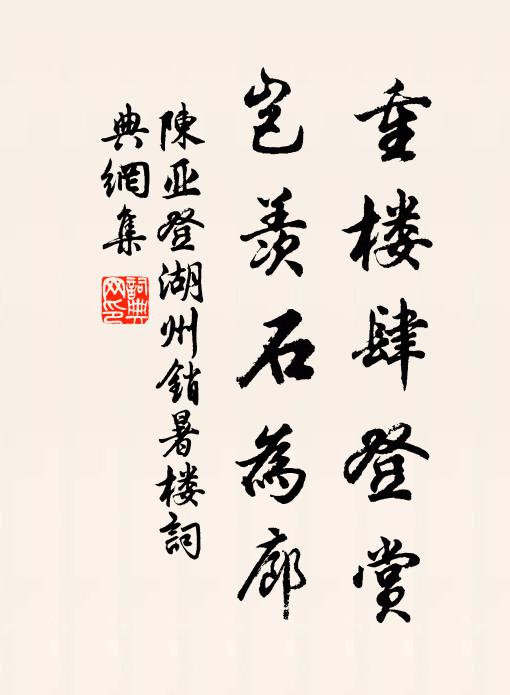 重楼肆登赏
岂羡石為廊
陳亚登湖州銷暑楼詞
典網集
詞典网印